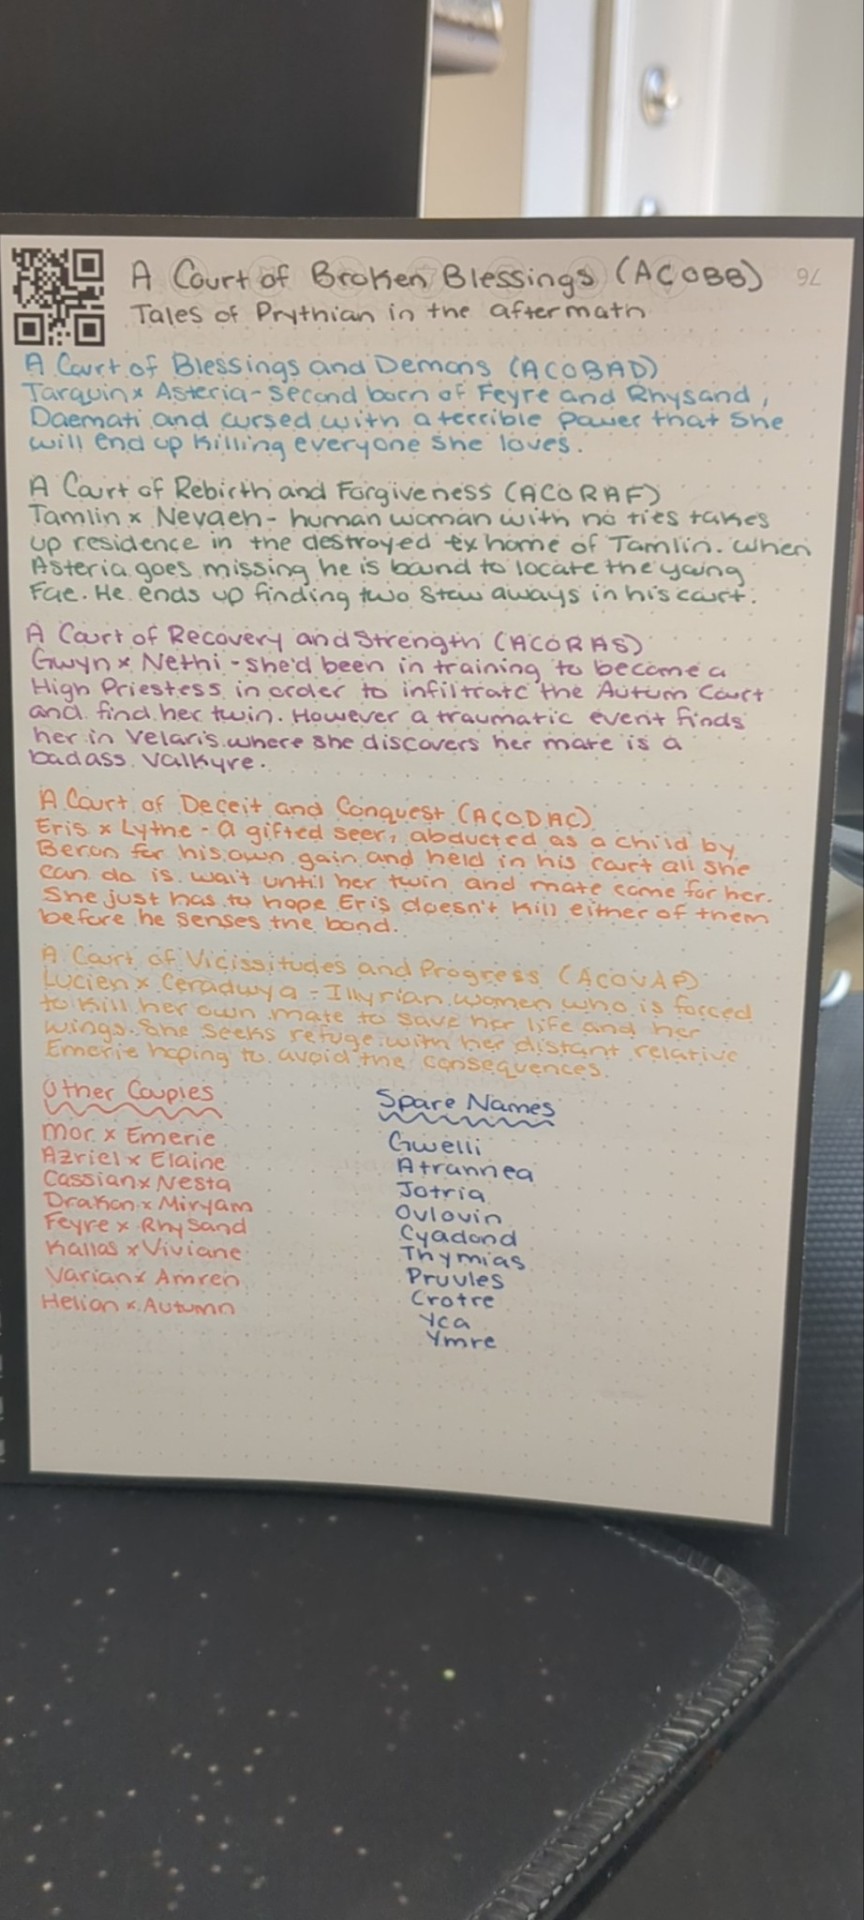 A Court of Broken Blessings (ACOBB)
Tales of Prythian in the aftermath
A Court of Blessings and Demons (ACOBAD)
Tarquin x Asteria - Second born of Feyre and Rhysand,
Daemati and cursed with a terrible power that she
will end up killing everyone she loves.
A Court of Rebirth and Forgiveness (ACORAF)
Tamlin x Nevaeh - human woman with no ties takes
up residence in the destroyed ex home of Tamlin. When
Asteria goes missing he is bound to locate the young
Fae. He ends up finding two stow aways in his court.
A Court of Recovery and Strength (ACORAS)
Gwyn x Nethi - she'd been in training to become a
High Priestess in order to infiltrate the Autum Court
and find her twin. However a traumatic event finds
her in Velaris where she discovers her mate is a
badass Valkyre.
A Court of Deceit and Conquest (ACODAC)
Eris x Lythe - a gifted seer, abducted as a child by
Beron for his own gain and held in his court all she
can do is wait until her twin and mate come for her.
She just has to hope Eris doesn't kill either of them
before he senses the bond.
A Court of Vicissitudes and Progress (ACOVAP)
Lucien x Ceradwya - Illyrian women who is forced
to kill her own mate to save her life and her
wings. She seeks refuge with her distant relative
Emerie hoping to avoid the consequences.
Other Couples
Mor x Emerie
Azriel x Elaine
Cassian x Nesta
Drakon x Miryam
Feyre x Rhysand
Kallas x Viviane
Varian x Amren
Helion x Autumn
Spare Names
Gwelli
Atrannea
Jotria
Ovlovin
Cyadond
Thymias
Pruvles
Crotre
Yca
Ymre